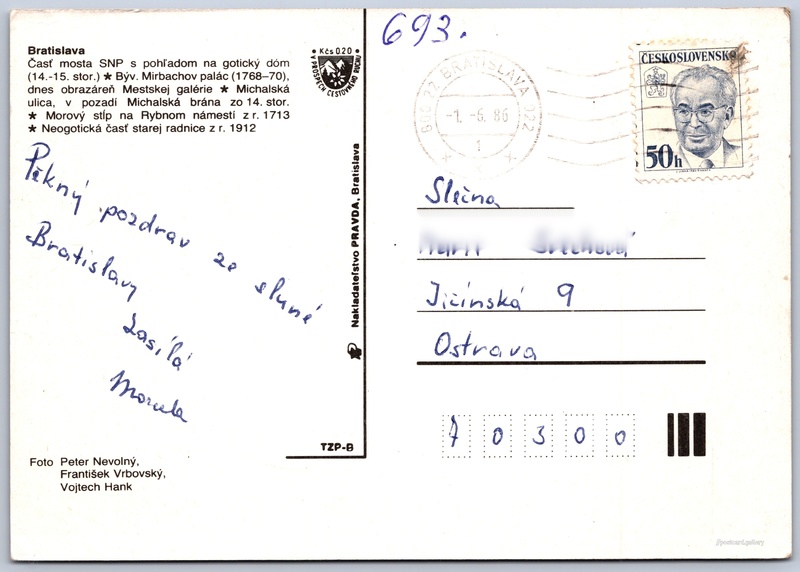 693.
Bratislava
Časť mosta SNP s pohľadom na gotický dóm
(14.-15. stor.) ★ Býv. Mirbachov palác (1768–70),
dnes obrazáreň Mestskej galérie ★ Michalská
ulica, v pozadí Michalská brána zo 14. stor.
★ Morový stĺp na Rybnom námestí z r. 1713
★ Neogotická časť starej radnice z r. 1912
Kčs 0,20
V PROSPECH CESTOVNÉHO RUCHU
BRATISLAVA 022
-1.-6. 86
1
ČESKOSLOVENSKO
50h
Pěkný pozdrav ze sluné
Bratislavy
Zasílá
Slečna
Jičínská 9
Ostrava
7 0 3 0 0
Nakladateľstvo PRAVDA, Bratislava
TZP-8
Foto Peter Nevolný,
František Vrbovský,
Vojtech Hank
//postcard.gallery